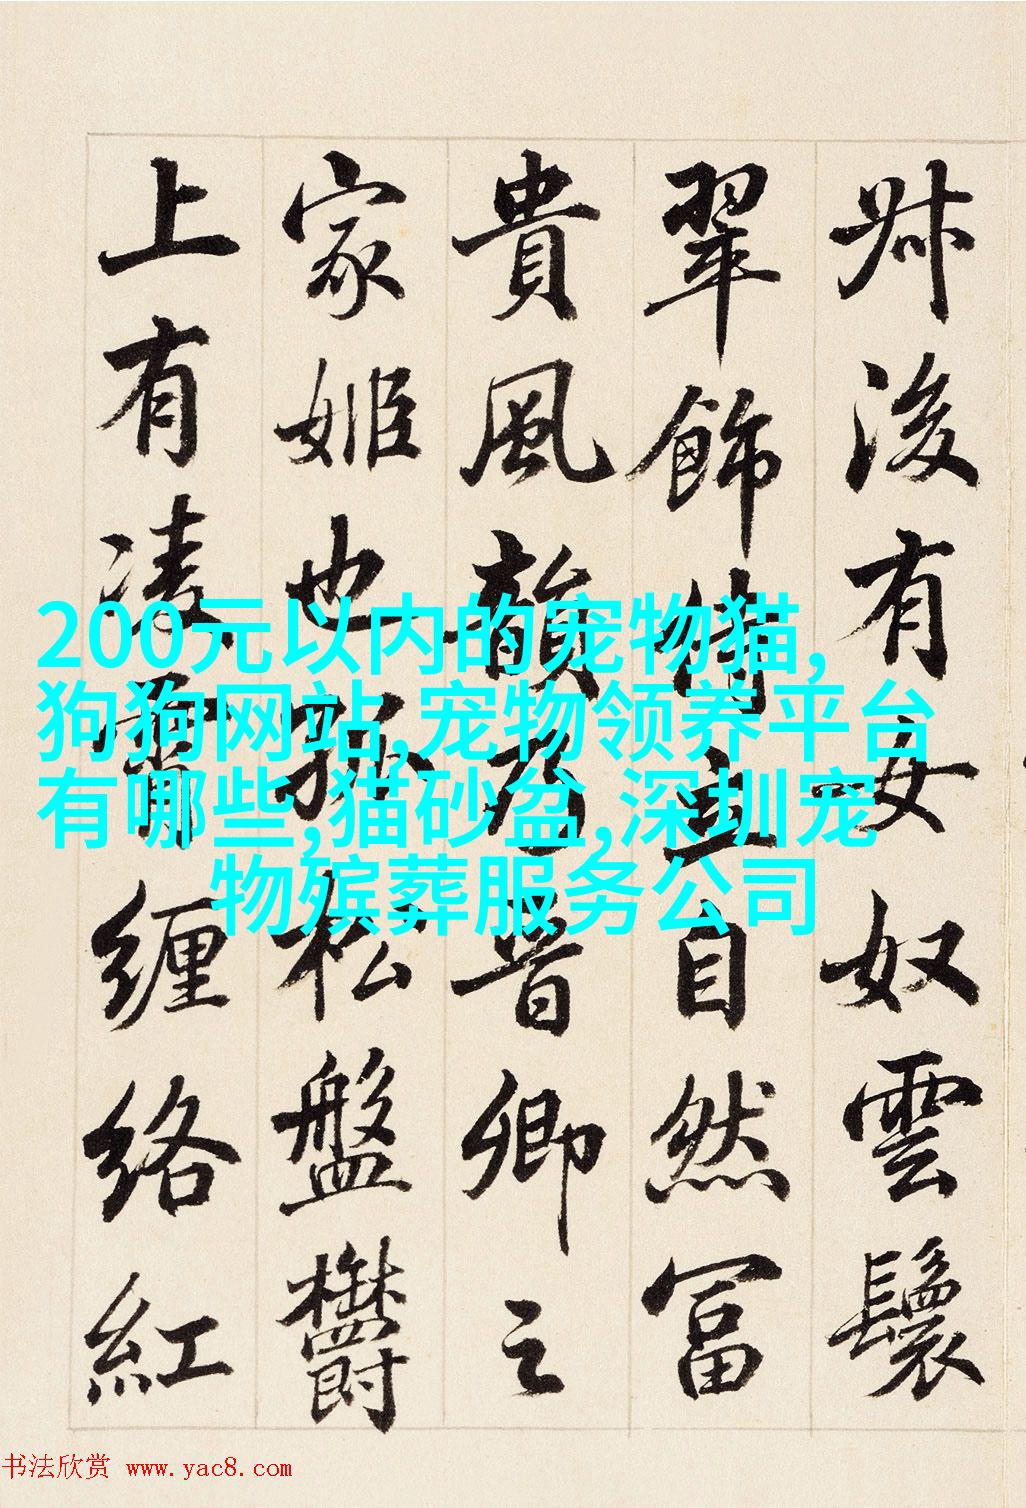 叔後有女奴雲鬟
翠飾侍立自然富
貴風韻乃晋卿之
家姬也孤松盤鬱
上有凌霄纏絡紅
200元以内的宠物猫,
狗狗网站,宠物领养平台
有哪些,猫砂盆,深圳宠
物殡葬服务公司
书法欣赏 www.yac8.com